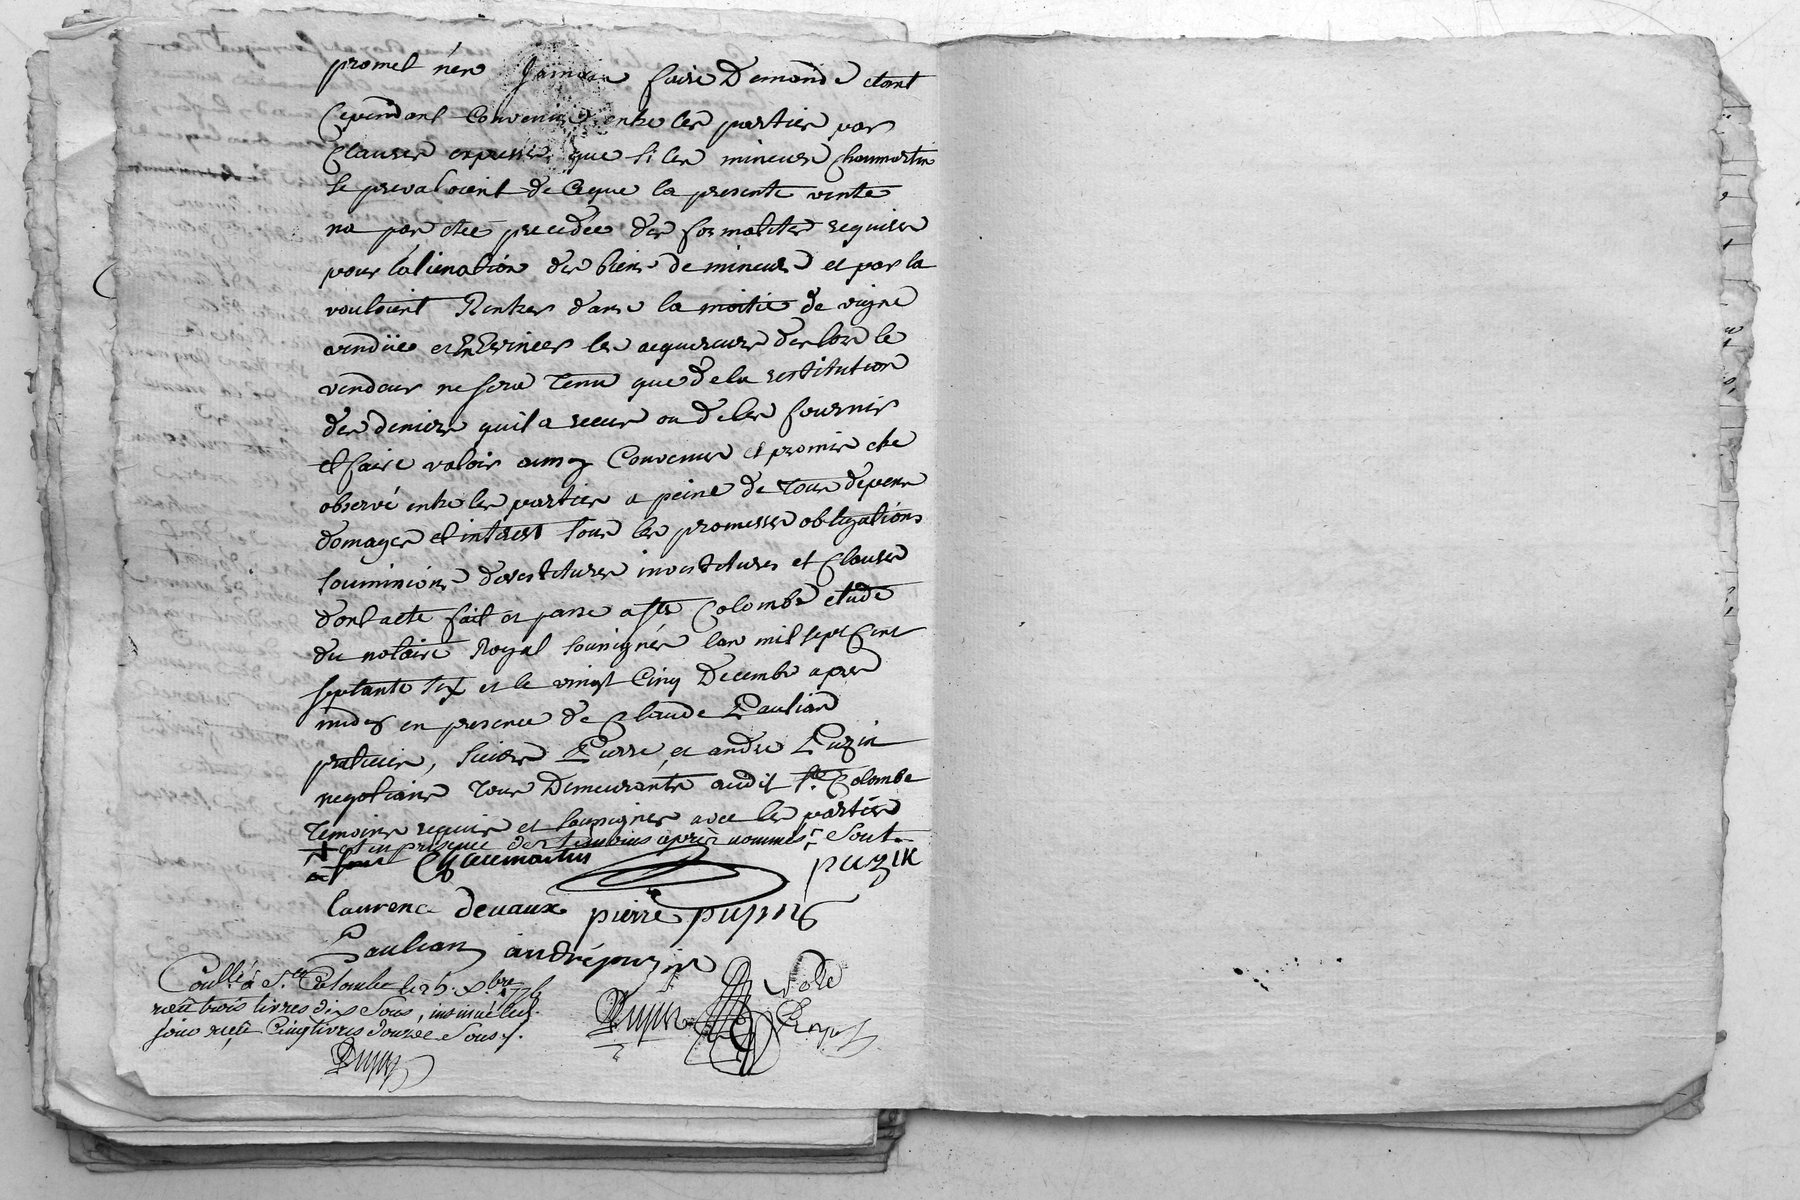 promet n'en Jamais faire Demande etant
Cependant Convenu entre les parties par
Clauses expresse que si les mineurs Chaumartin
se prevaloient de Ceque la presente vente
na pas eteé precedée des formalités requises
pour l'alienation des biens de mineurs et par la
vouloient Rentrer dans la moitié de vigne
vendüe et Evincer les acquereurs des lors le
vendeur ne sera Tenu que de la restitution
des deniers quil a receus ou de les fournir
et faire valoir ainsy Convenus et promis etre
observé entre les parties a peine de Tous depens
domages et interest sous les promesses obligations
soumissions devestitures investitures et Clauses
dont acte fait et passé a Ste Colombe etude
du notaire Royal soussignés lan mil sept Cent
septante six et le vingt Cinq Decembre apres
midy en presence de Claude Paulian
praticien, sieurs Pierre et andré Puzin
negotians Tous Demeurants audit Ste Colombe
Temoins requis et soussignés avec les parties
et en presence des temoins après nommés Sout
Chaumartin
puzin
laurence devaux pierre pupin
Paulian andré puzin
Coullé a Ste Colombe le 25 Xbre 1776
reçu trois livres dix Sous, insinué led.
jour reçu Cinq livres douze Sous.